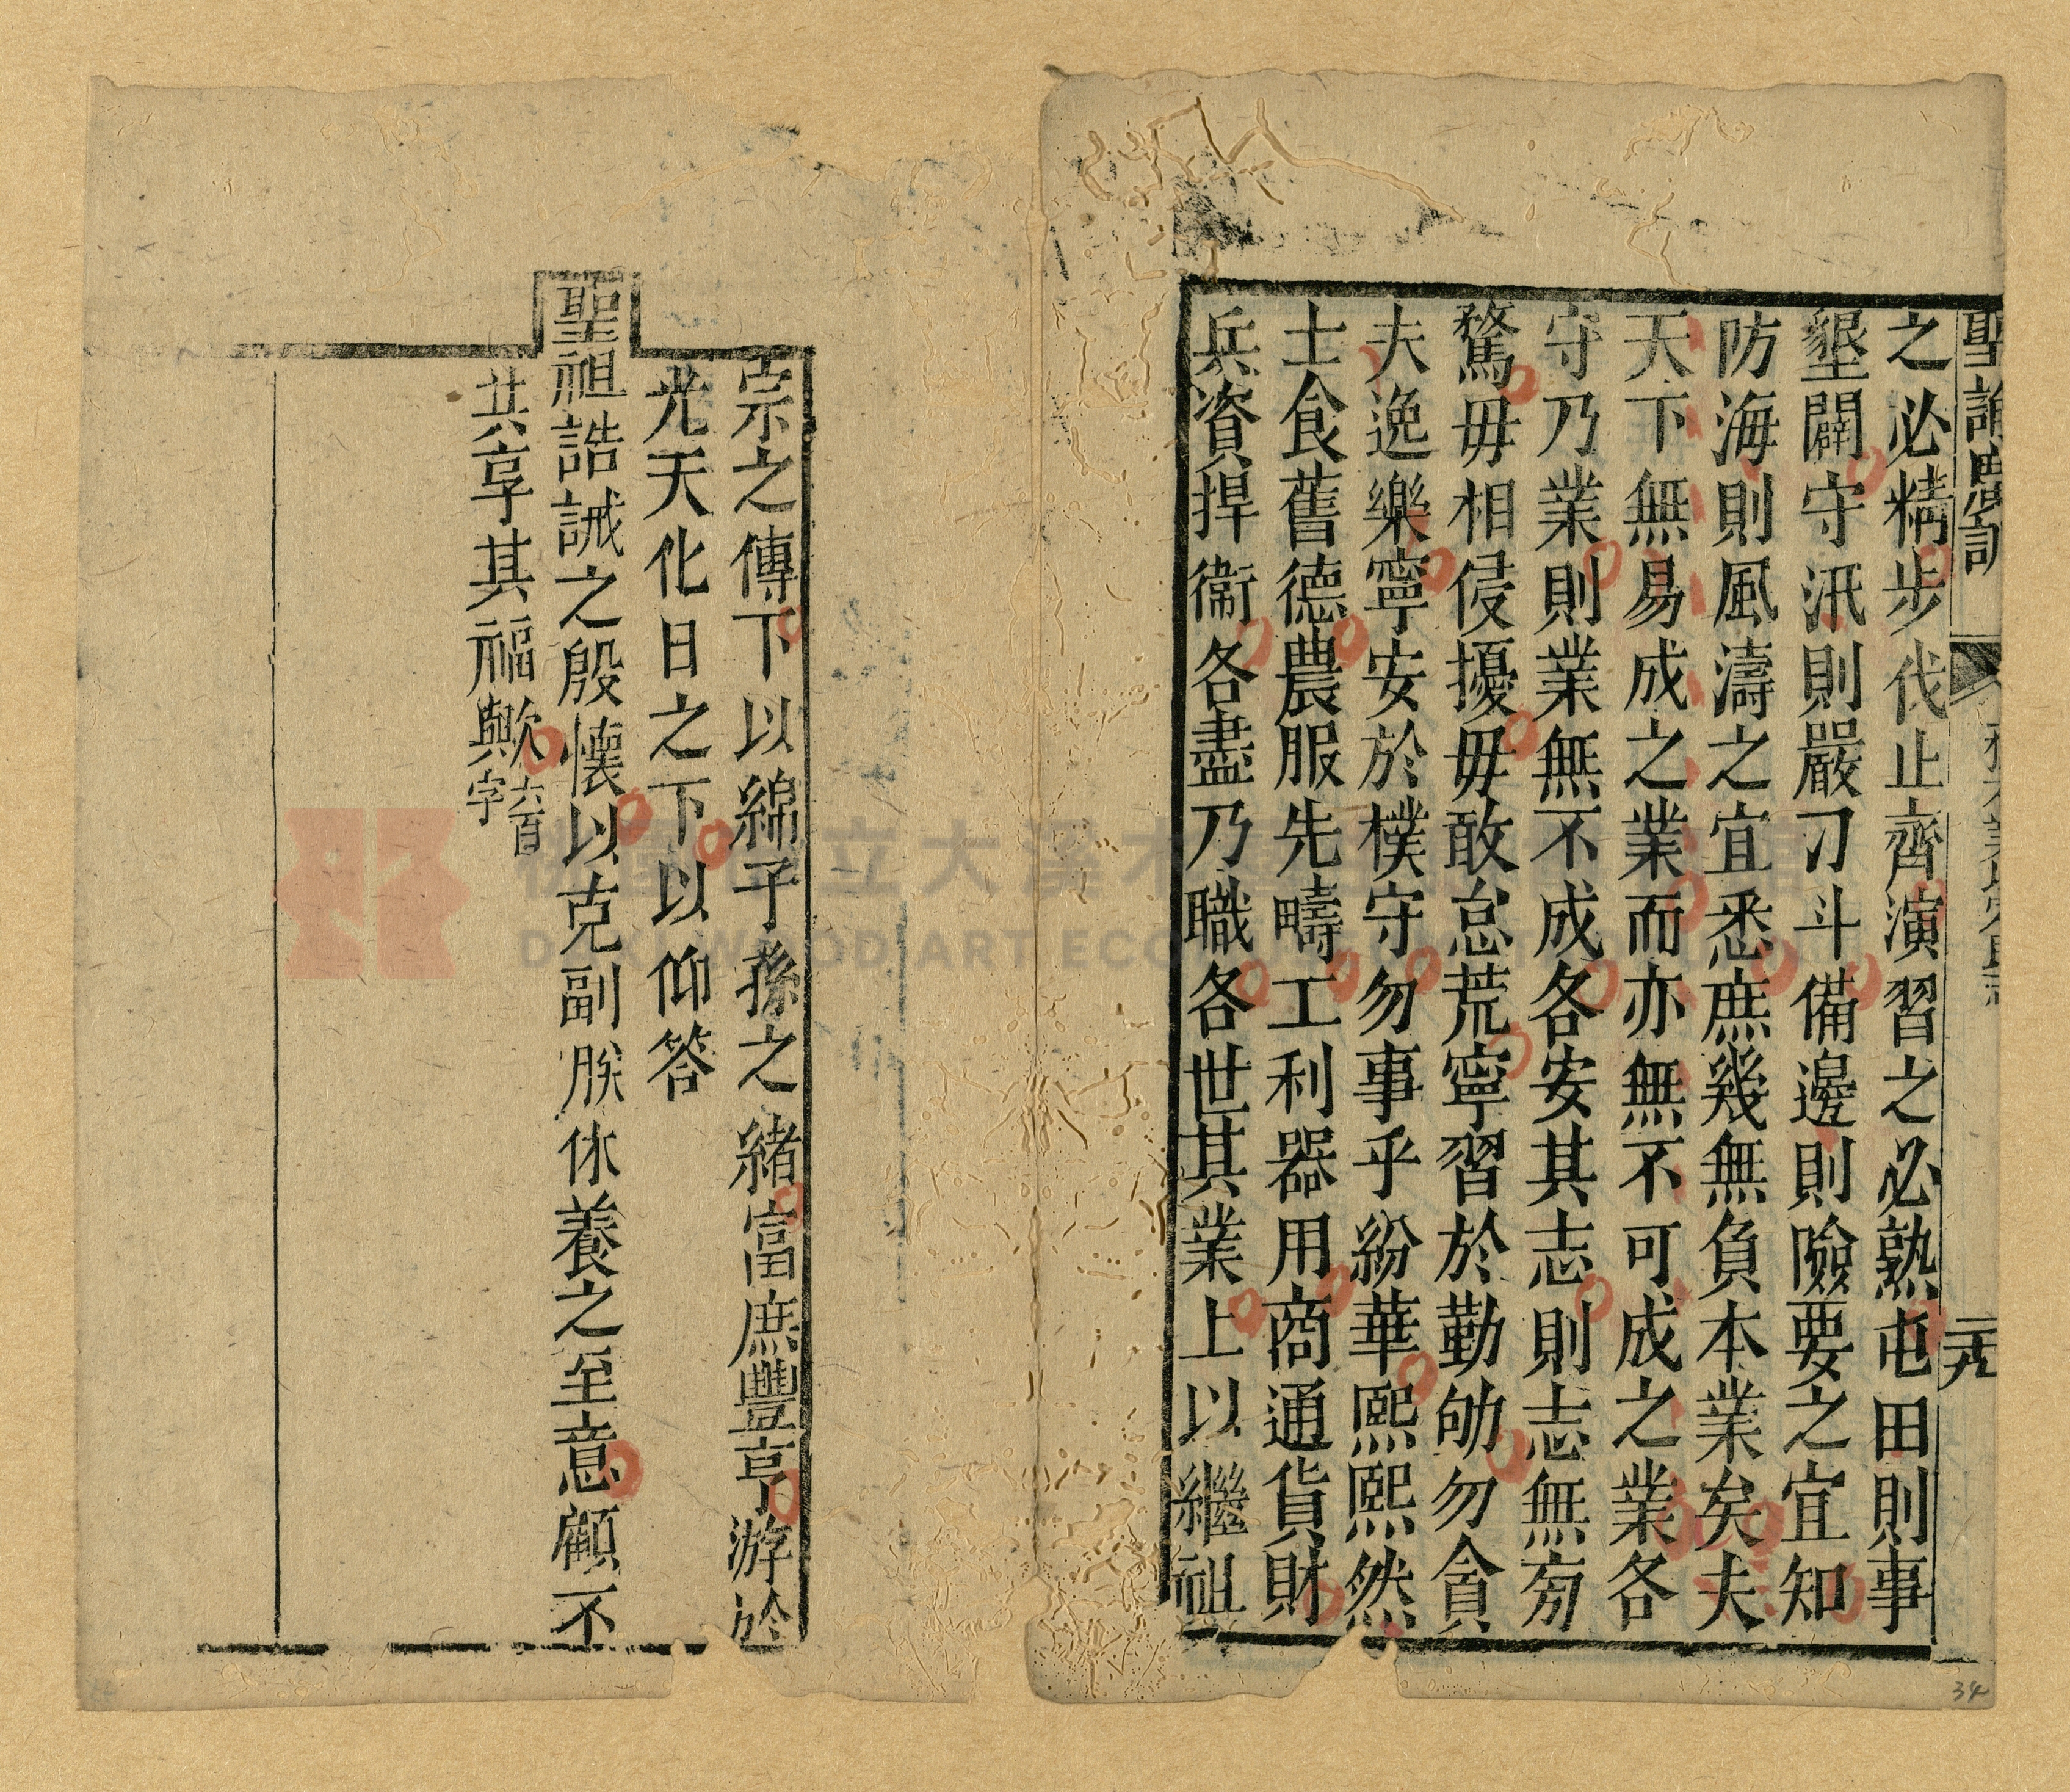 聖諭廣訓
二十九
之必精步伐止齊演習之必熟屯田則事
墾闢守汛則嚴刁斗備邊則險要之宜知
防海則風濤之宜悉庶幾無負本業矣夫
天下無易成之業而亦無不可成之業各
守乃業則業無不成各安其志則志無旁
騖毋相侵擾毋敢怠荒寧習於勤劬勿貪
夫逸樂寧安於樸守勿事乎紛華熙熙然
士食舊德農服先疇工利器用商通貨財
兵資捍衛各盡乃職各世其業上以繼祖
宗之傳下以綿子孫之緒富庶豐亨游於
光天化日之下以仰答
聖祖誥誡之殷懷以克副朕休養之至意顧不
共享其福歟
34